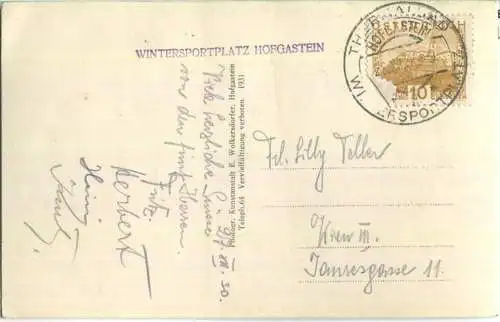 WINTERSPORTPLATZ HOFGASTEIN
IM TH
HOFGASTEIN
10
ERSPORTPLATZ
Pflauer, Kunstanstalt E. Wolkersdorfer, Hofgastein
Teleph. 64 Vervielfältigung verboten. 1931
Viele herzliche Grüsse
von den fünf
Fritz
Herbert
Frl. Lilly Teller
Wien III.
Jauresgasse 11.